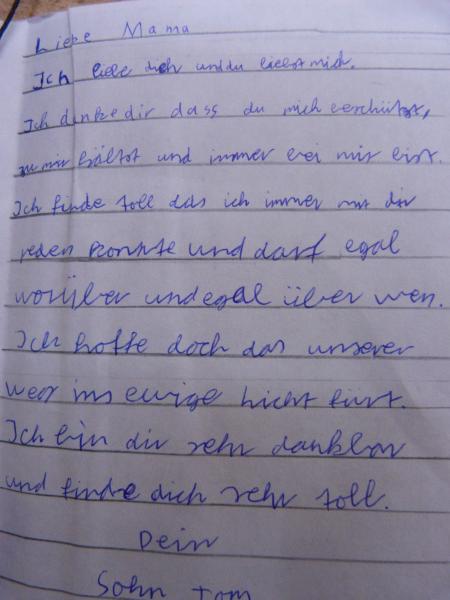 Liebe Mama
Ich liebe dich und du liebst mich.
Ich danke dir dass du mich beschützt,
zu mir hältst und immer bei mir bist.
Ich finde toll das ich immer mit dir
reden konnte und darf egal
worüber und egal über wen.
Ich hoffe doch das unserer
weg ins ewige Licht fürt.
Ich bin dir sehr dankbar
und finde dich sehr toll.
Dein
Sohn Tom